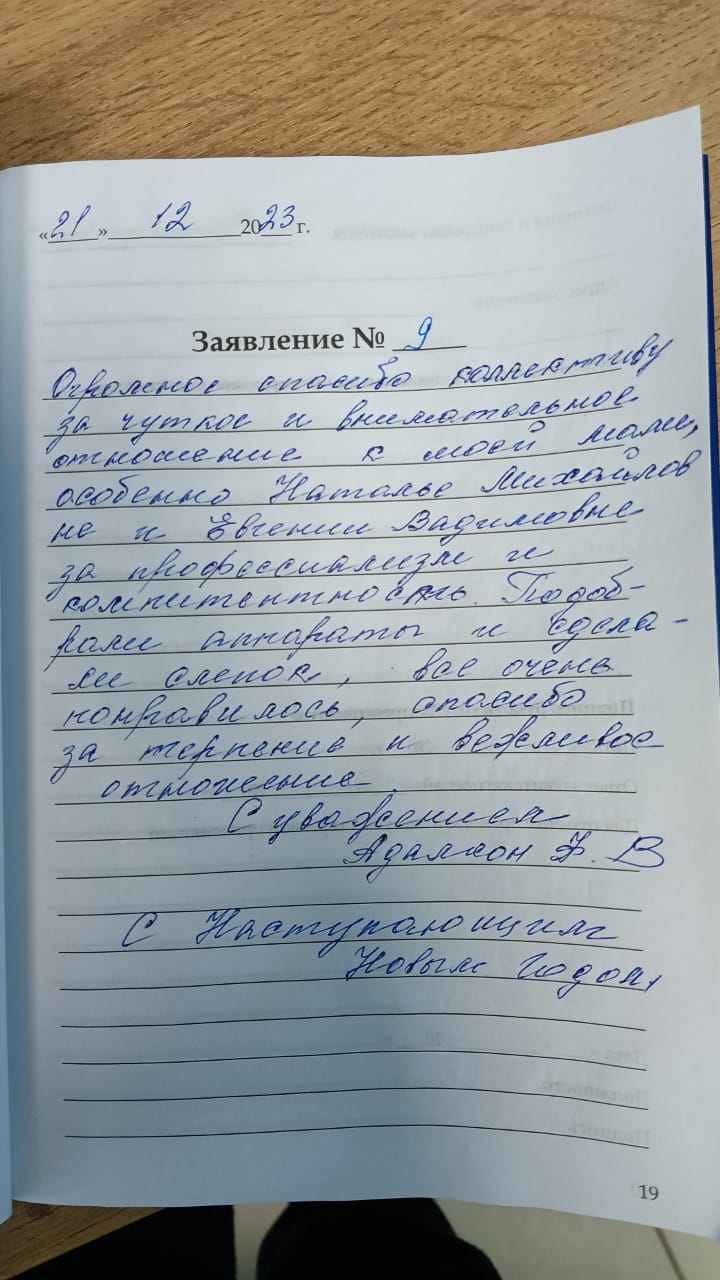 «21» 12 2023 г.
Заявление № 9
Огромное спасибо коллективу
за чуткое и внимательное
отношение к моей маме,
особенно Наталье Михайлов
не и Евгении Вадимовне
за профессиализм и
компитентность. Подоб-
рали аппараты и сдела-
ли слепок, все очень
понравилось, спасибо
за терпение и вежливое
отношение.
С уважением
С Наступающим
Новым годом,
19